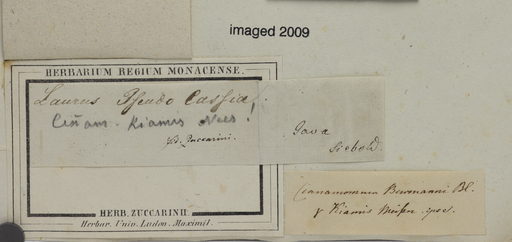 imaged 2009
HERBARIUM REGIUM MONACENSE.
Laurus Pseudo Cassia,
Cin̄am. Kiamis Nees!
Zuccarini.
Java
Siebold.
HERB. ZUCCARINII
Herbar. Univ. Ludov. Maximil.
Cinnamomum Burmanni Bl.
γ Kiamis